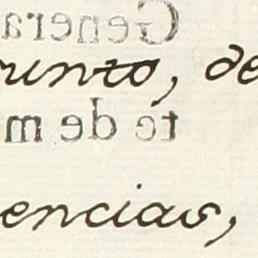 Genera
runto, de
te de m
encias,